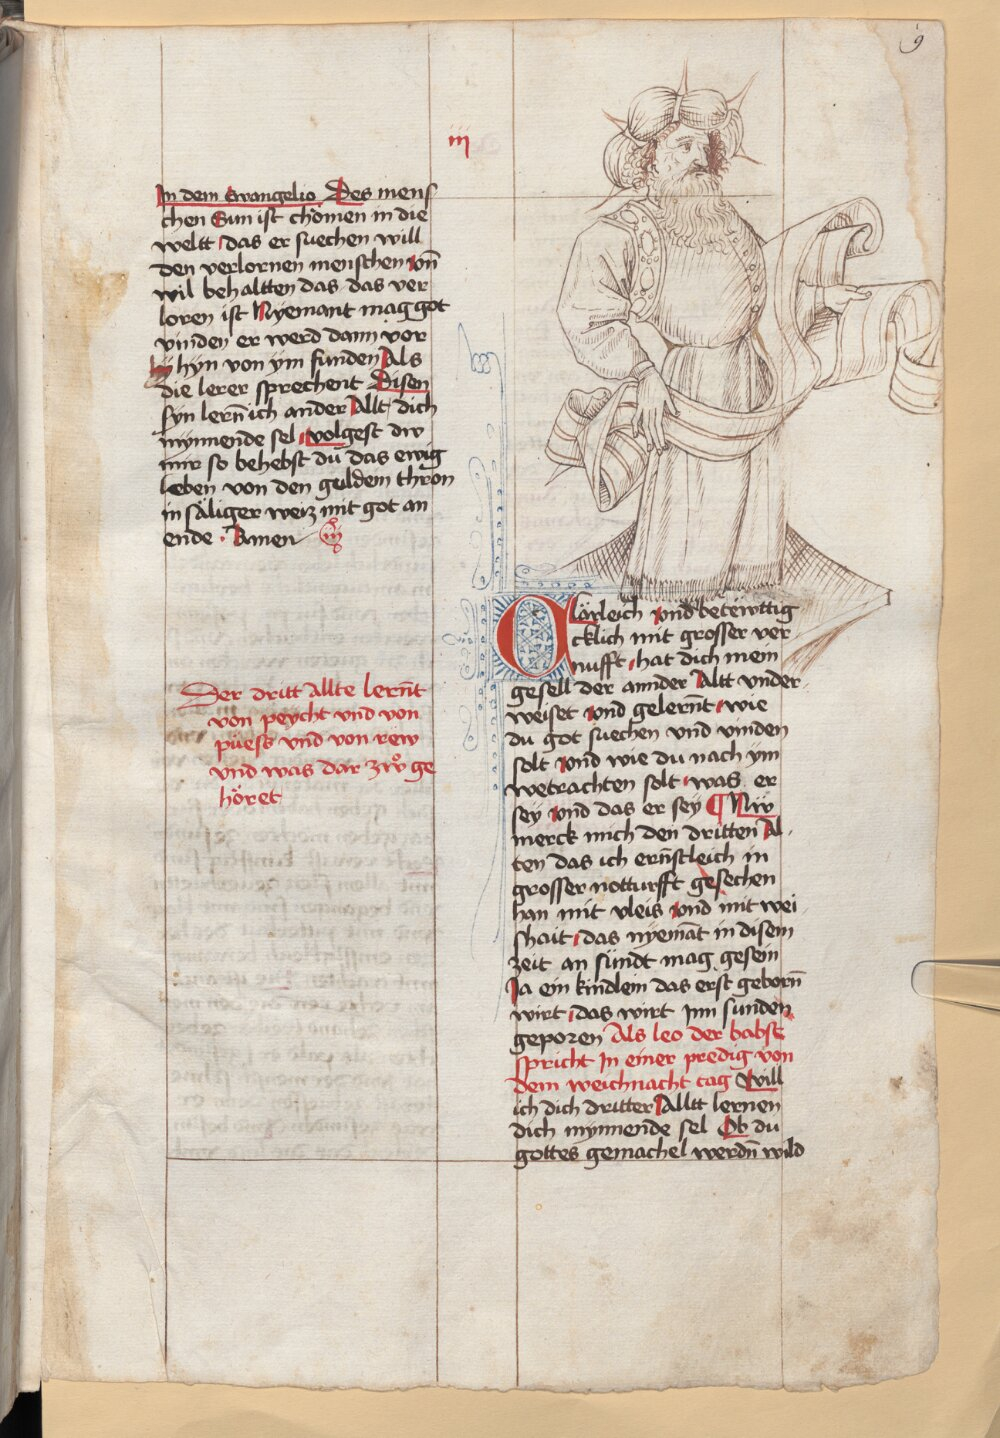 9
iij
In dem Ewangelio Des mens
chen Sun ist chomen in die
weltt das er suechen will
den verlornen menschen vn̄
wil behaltten das das ver
loren ist Nyemant mag got
vinden er werd dann vor
hyn von ym funden Als
die lerer sprechent Disen
syn lern̄ ich ander Allt dich
mynnende sel volgest dw
mir so behebst du das ewig
leben von den guldem thron
in säliger weiz mit got an
ende . Amen
Der dritt Allte lern̄t
von peycht vnd von
püess vnd von rew
vnd was dar zwͦ ge
höret
Clärleich vnd betëwttig
cklich mit grosser ver
nufft hat dich mein
gesell der annder Altt vnder
weiset vnd gelern̄t wie
du got suechen vnd vinden
solt vnd wie du nach ym
wetrachten solt was er
sey vnd das er sey ¶ Nw̄
merck mich den dritten Al
ten das ich ern̄stleich in
grosser notturfft gesechen
han mit vleis vnd mit wei
shait das nyemāt in disem
zeit an sündt mag gesein
Ja ein kindlein das erst geborn̄
wirt das wirt Inn sunden
geporen Als leo der babst
spricht In einer predig von
dem weichnacht tag Will
ich dich dritter Alltt lernen
dich mynnende sel Ob du
gottes gemachel werdn̄ wild